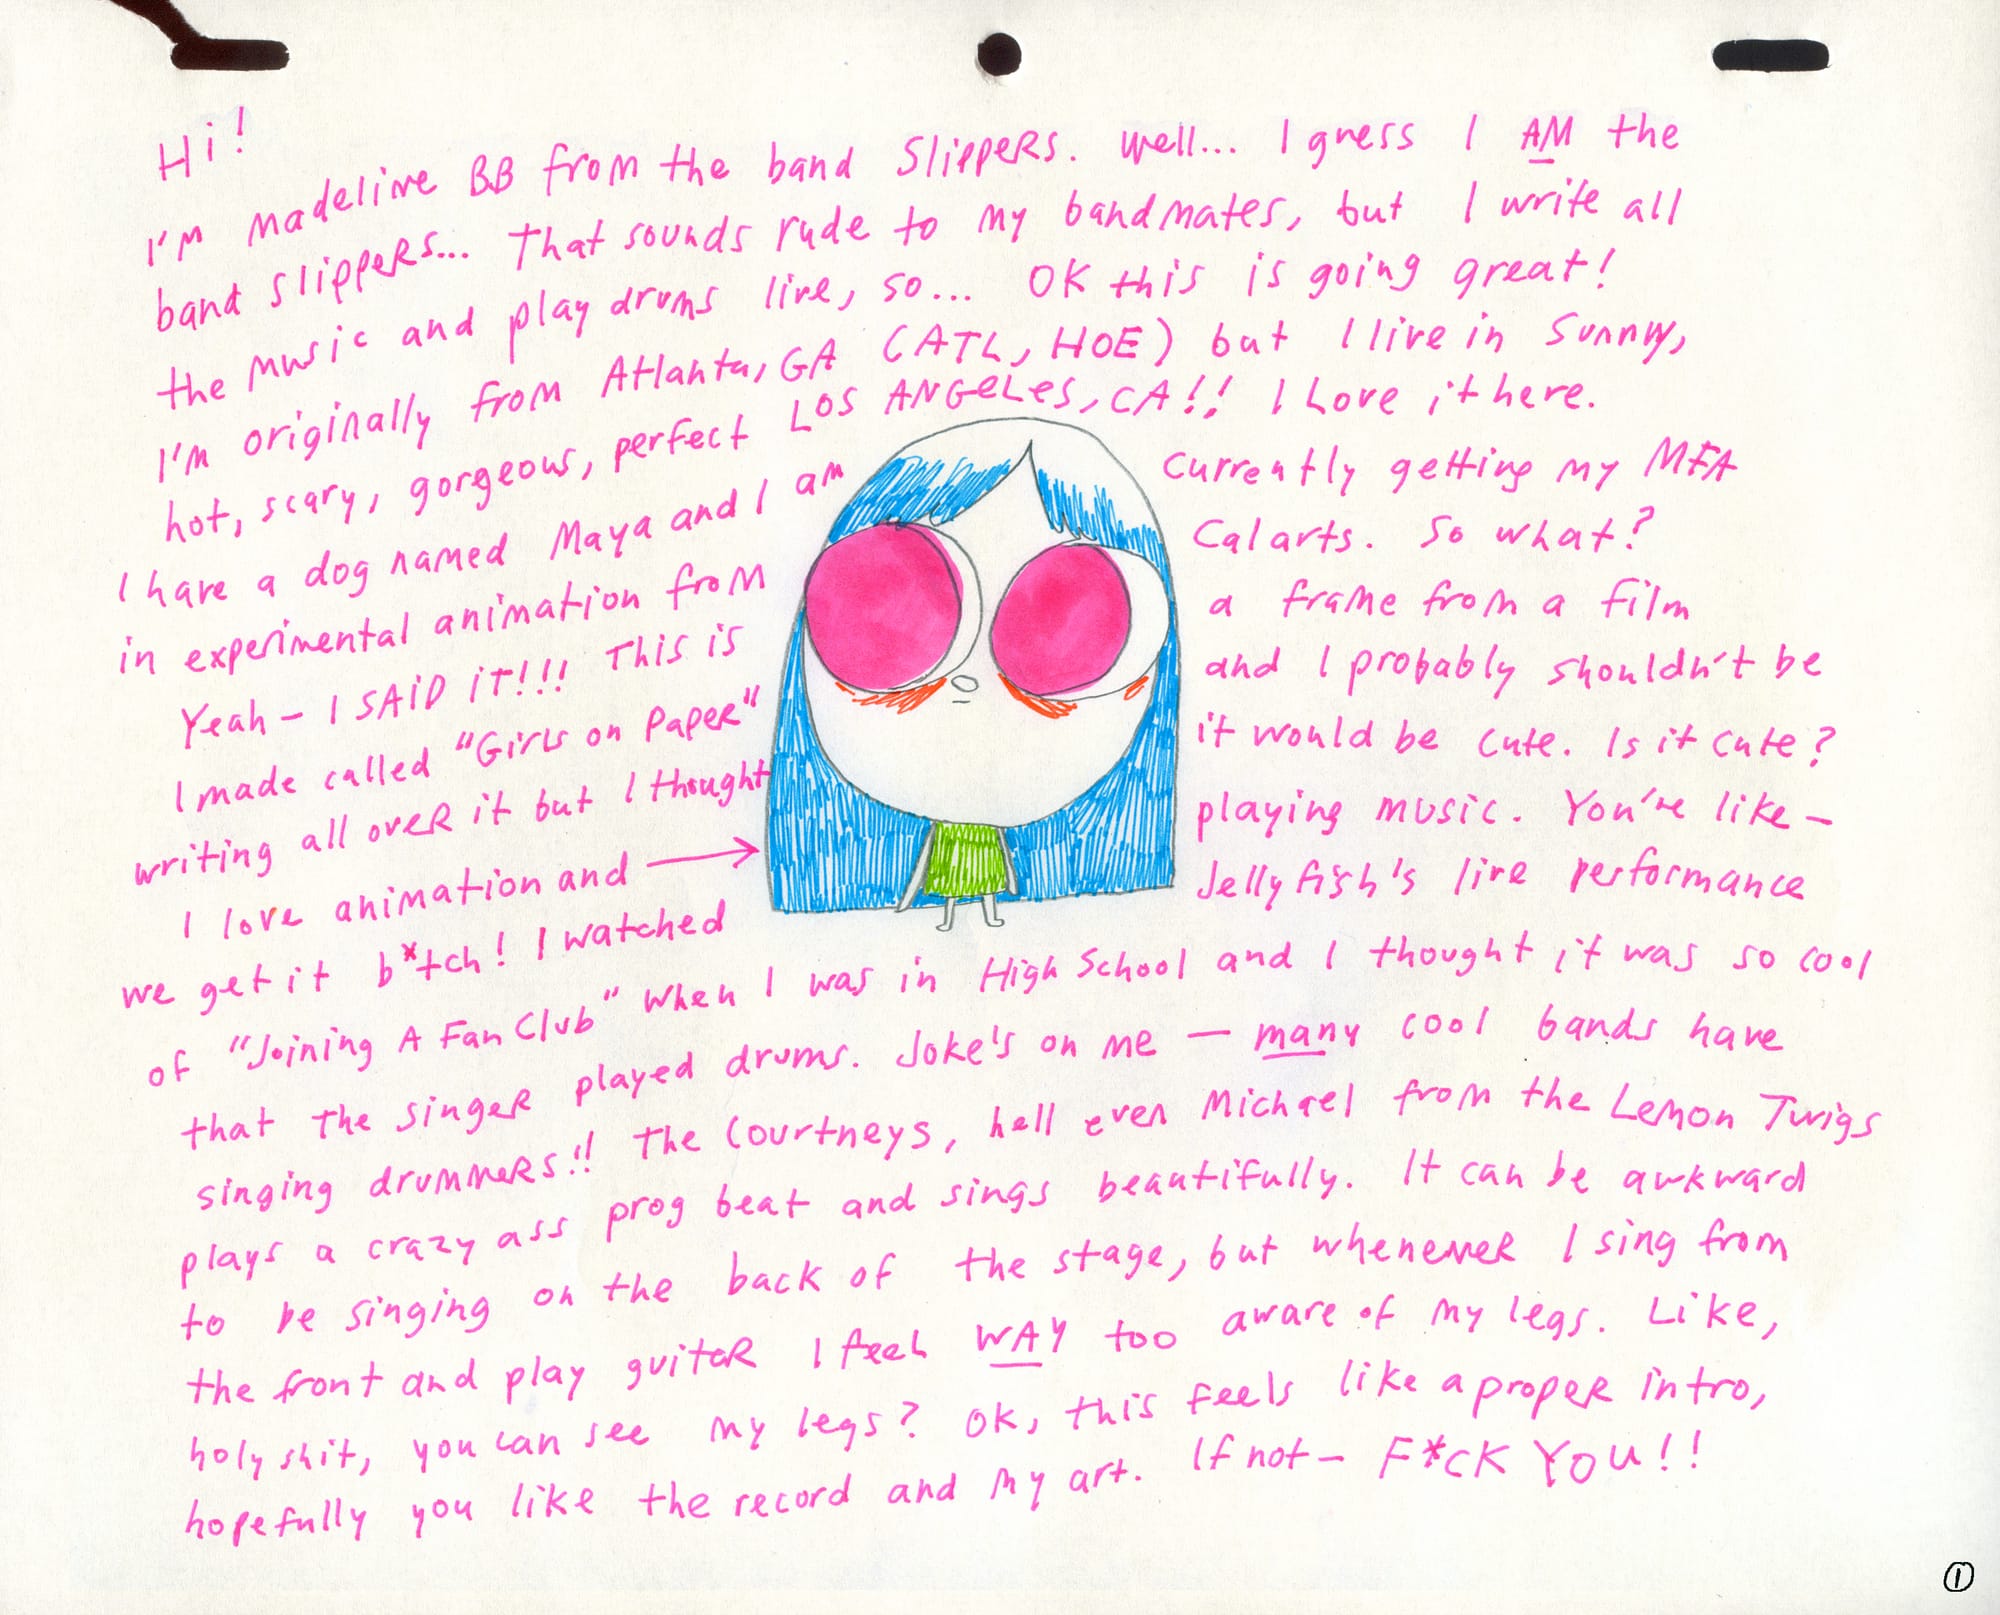 Hi!
I'm Madeline BB from the band Slippers. Well... I guess I AM the
band Slippers... That sounds rude to my bandmates, but I write all
the music and play drums live, so... OK this is going great!
I'm originally from Atlanta, GA (ATL, HOE) but I live in sunny,
hot, scary, gorgeous, perfect LOS ANGELES, CA!! I Love it here.
I have a dog named Maya and I am currently getting my MFA
in experimental animation from Calarts. So what?
Yeah - I SAID IT!!! This is a frame from a film
I made called "Girls on Paper" and I probably shouldn't be
writing all over it but I thought it would be cute. Is it cute?
I love animation and → playing music. You're like -
we get it b*tch! I watched Jellyfish's live performance
of "Joining A Fan Club" when I was in High School and I thought it was so cool
that the singer played drums. Joke's on me - many cool bands have
singing drummers!! The Courtneys, hell even Michael from the Lemon Twigs
plays a crazy ass prog beat and sings beautifully. It can be awkward
to be singing on the back of the stage, but whenever I sing from
the front and play guitar I feel WAY too aware of my legs. Like,
holy shit, you can see my legs? OK, this feels like a proper intro,
hopefully you like the record and my art. If not - F*CK YOU!!
1